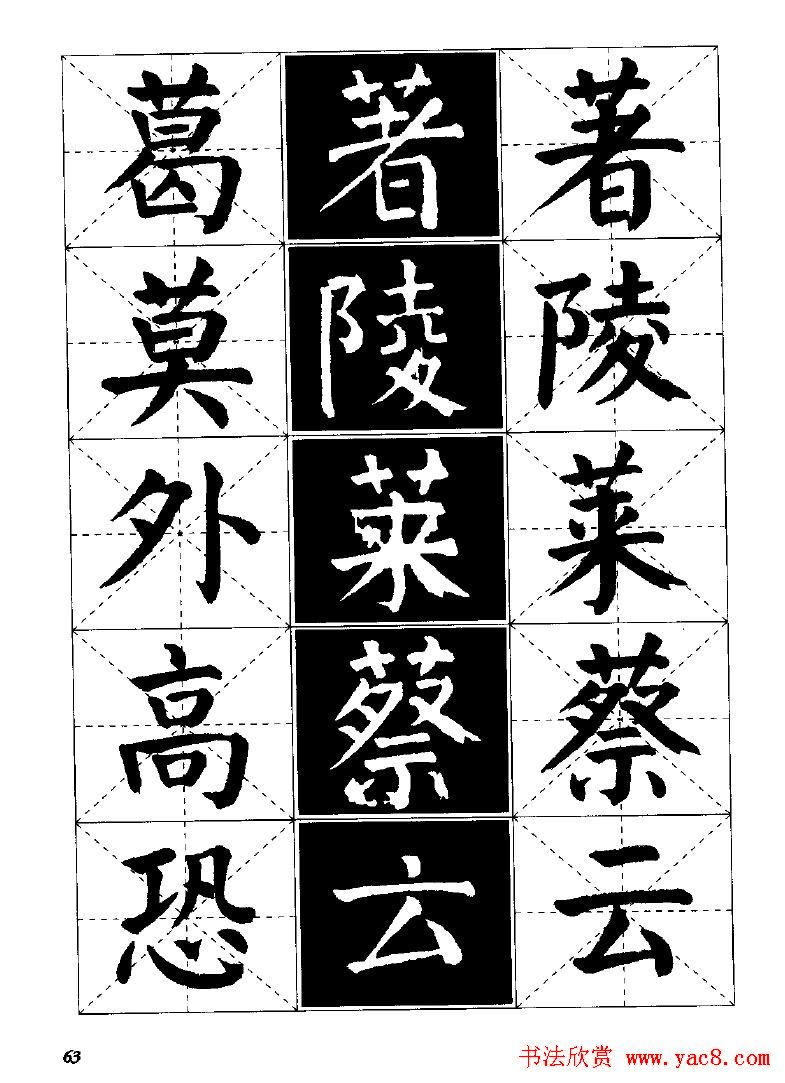 葛 著 著
莫 陵 陵
外 莱 莱
高 蔡 蔡
恐 云 云
63
书法欣赏 www.yac8.com